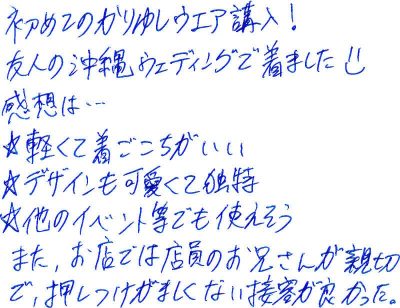 初めてのかりゆしウエア講入!
友人の沖縄ウェディングで着ました
感想は…
☆軽くて着ごこちがいい
☆デザインも可愛くて独特
☆他のイベント等でも使えそう
また、お店では店員のお兄さんが親切
で、押しつけがましくない接客が良かった。